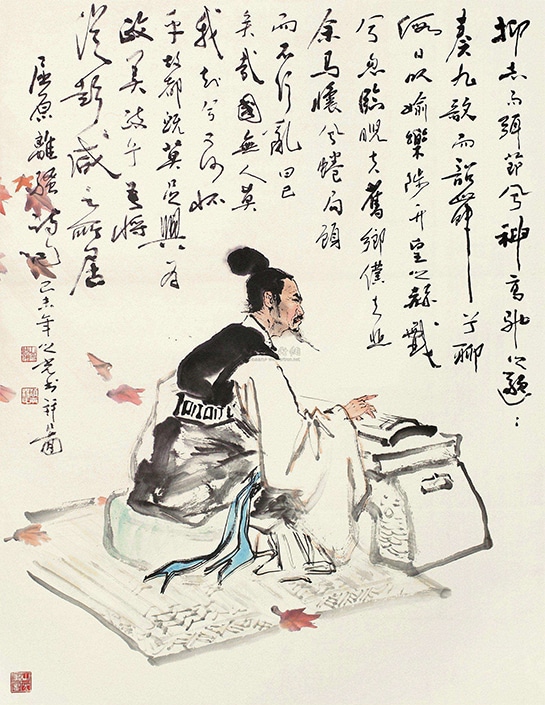 抑志而弭節兮神高馳之邈：
奏九歌而韶舞兮聊
假日以愉樂陟升皇之赫戲
兮忽臨睨夫舊鄉僕夫悲
余馬懷兮蜷局顧
而不行亂曰已
矣哉國無人莫
我知兮又何懷
乎故都既莫足與為
美政兮吾將
從彭咸之所居
屈原離騷詩句
己未年之光書